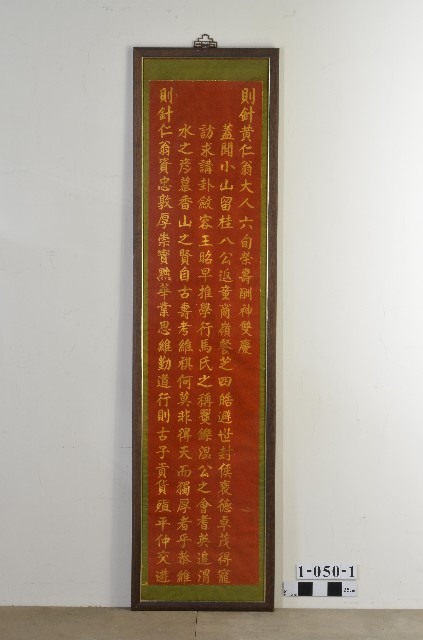 則針黃仁翁大人六旬榮壽酬神雙慶
蓋聞小山留桂八公返童商嶺餐芝四皓避世封侯褒德卓茂得寵
訪求講卦斂容王昭早推學行馬氏之稱矍鑠溫公之會耆英追渭
水之彥慕香山之賢自古壽考維祺何莫非得天而獨厚者乎恭維
則針仁翁資忠敦厚崇實黜華業思維勤道行則古子貢貨殖平仲交遊
1-050-1